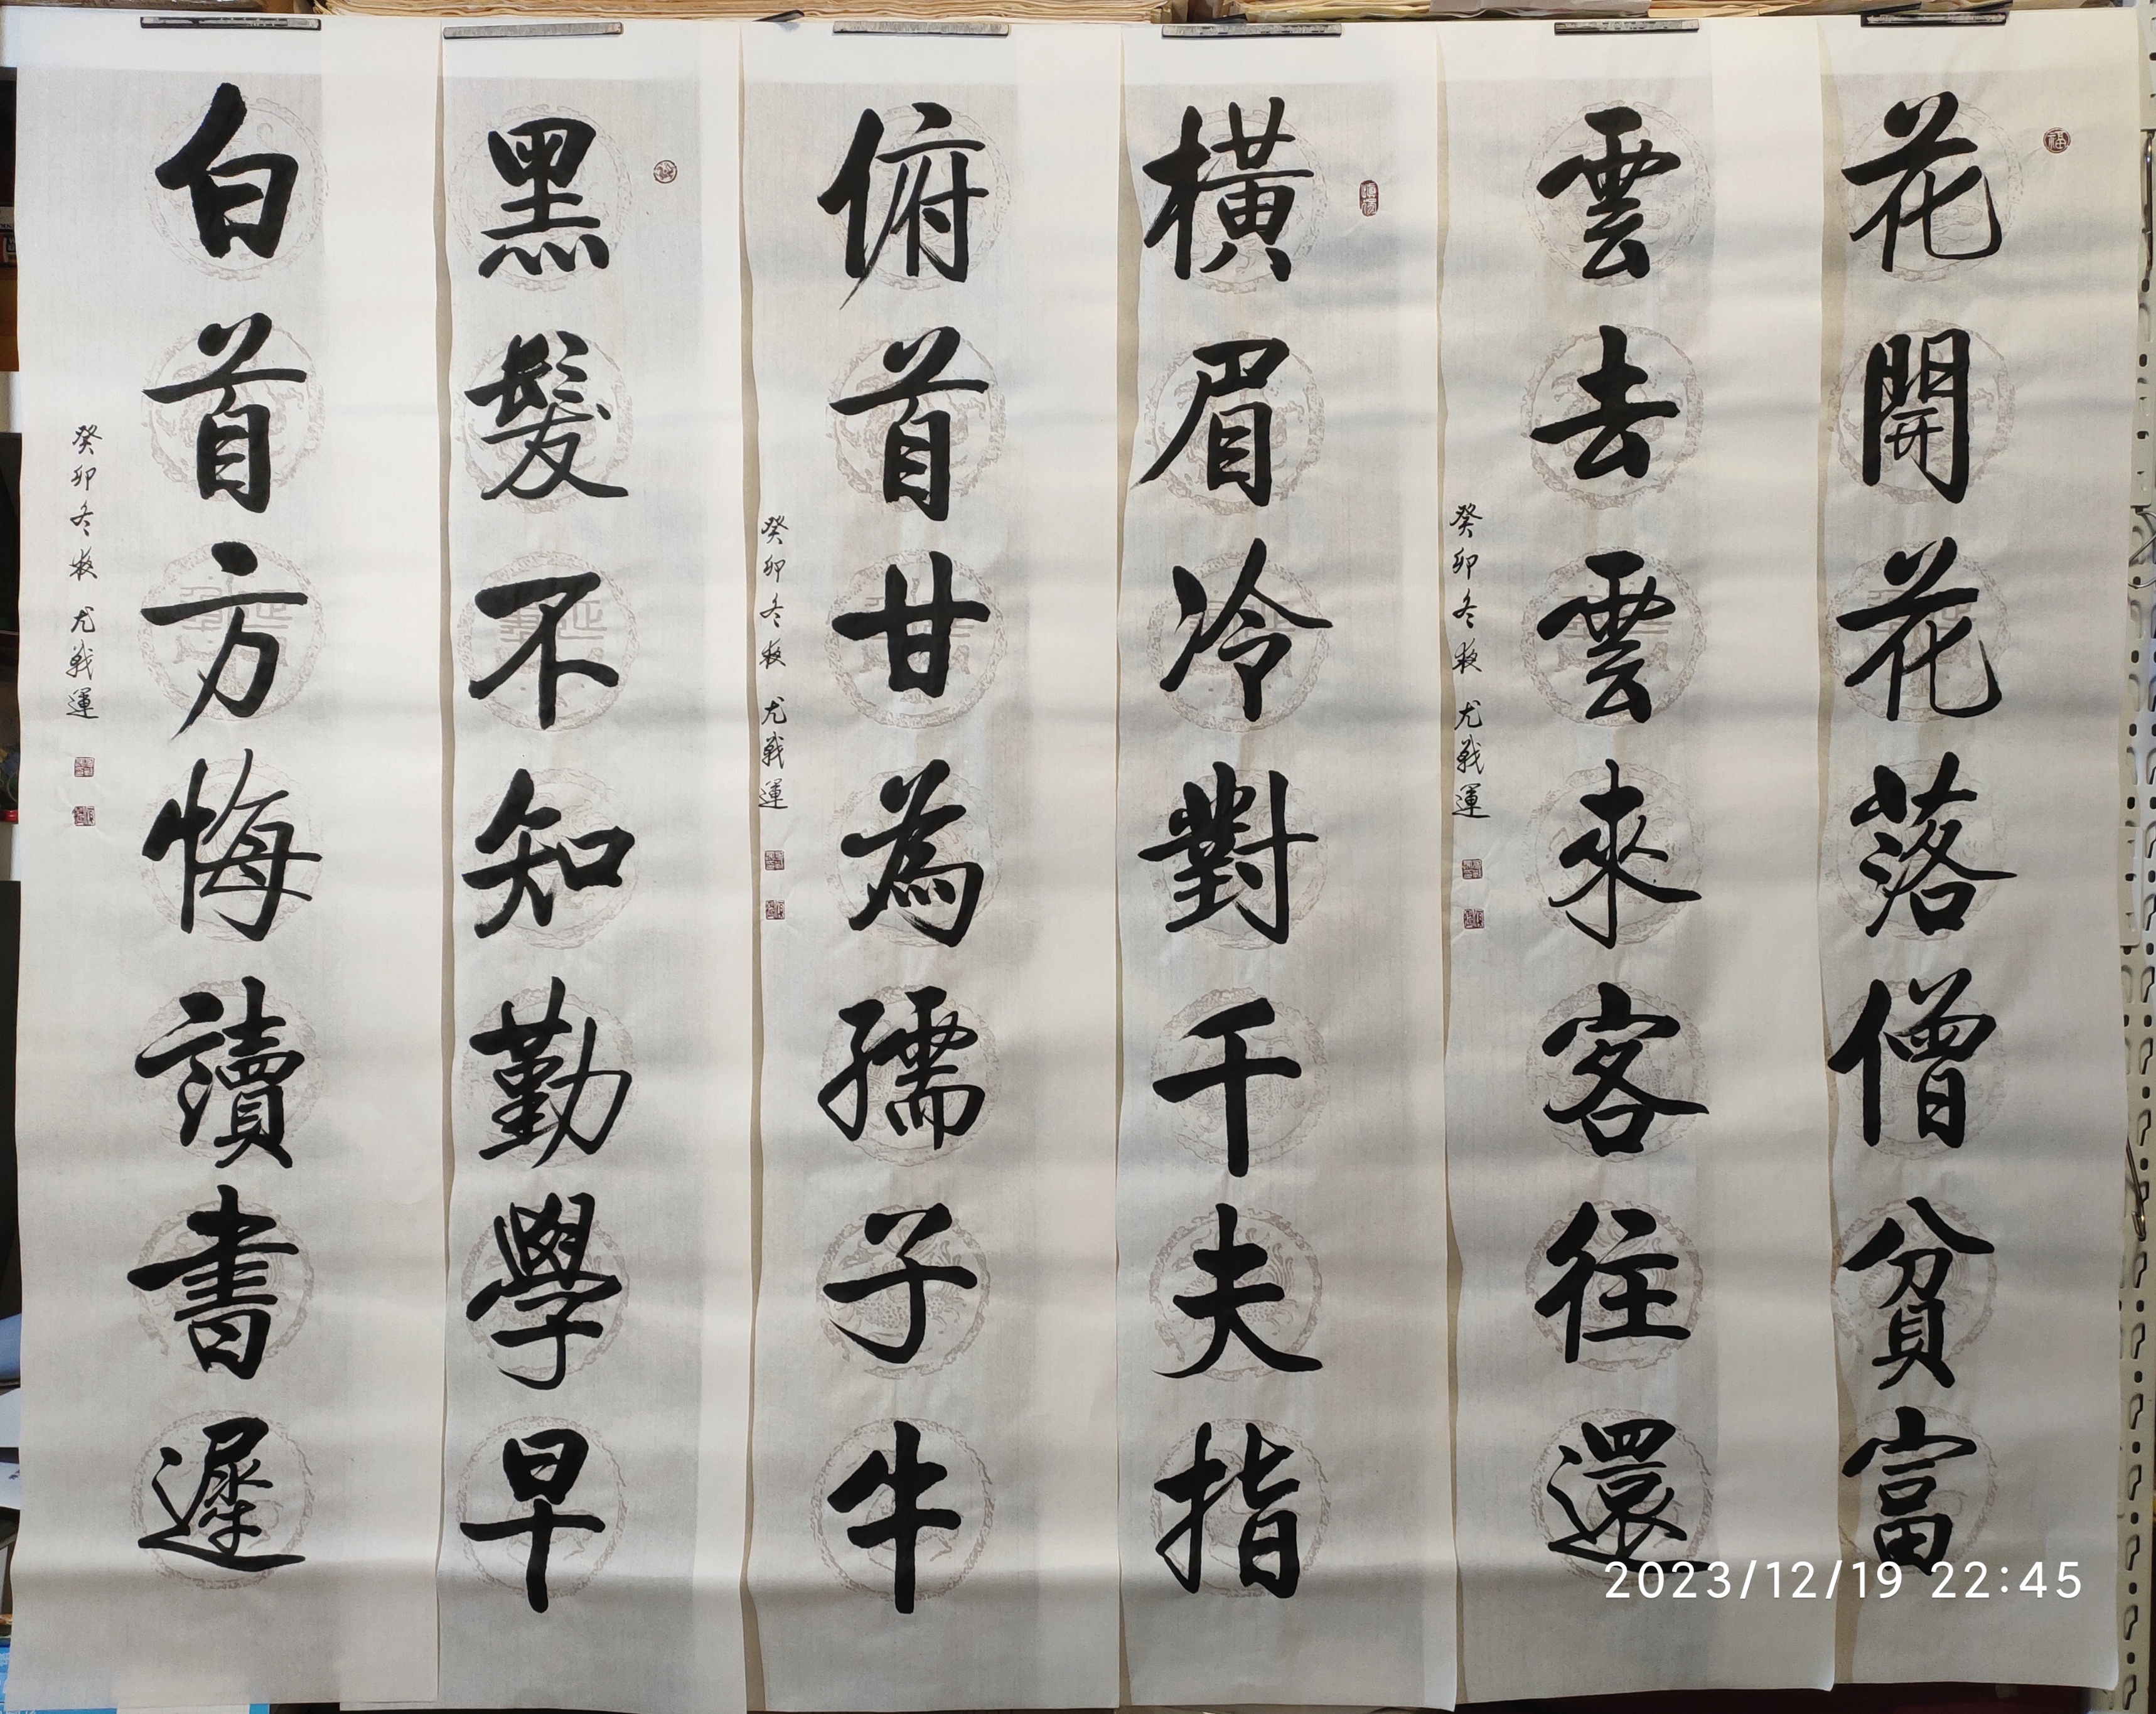 花開花落僧貧富
雲去雲來客往還
癸卯冬牧 尤戰運
橫眉冷對千夫指
俯首甘為孺子牛
癸卯冬牧 尤戰運
黑髮不知勤學早
白首方悔讀書遲
癸卯冬牧 尤戰運
2023/12/19 22:45